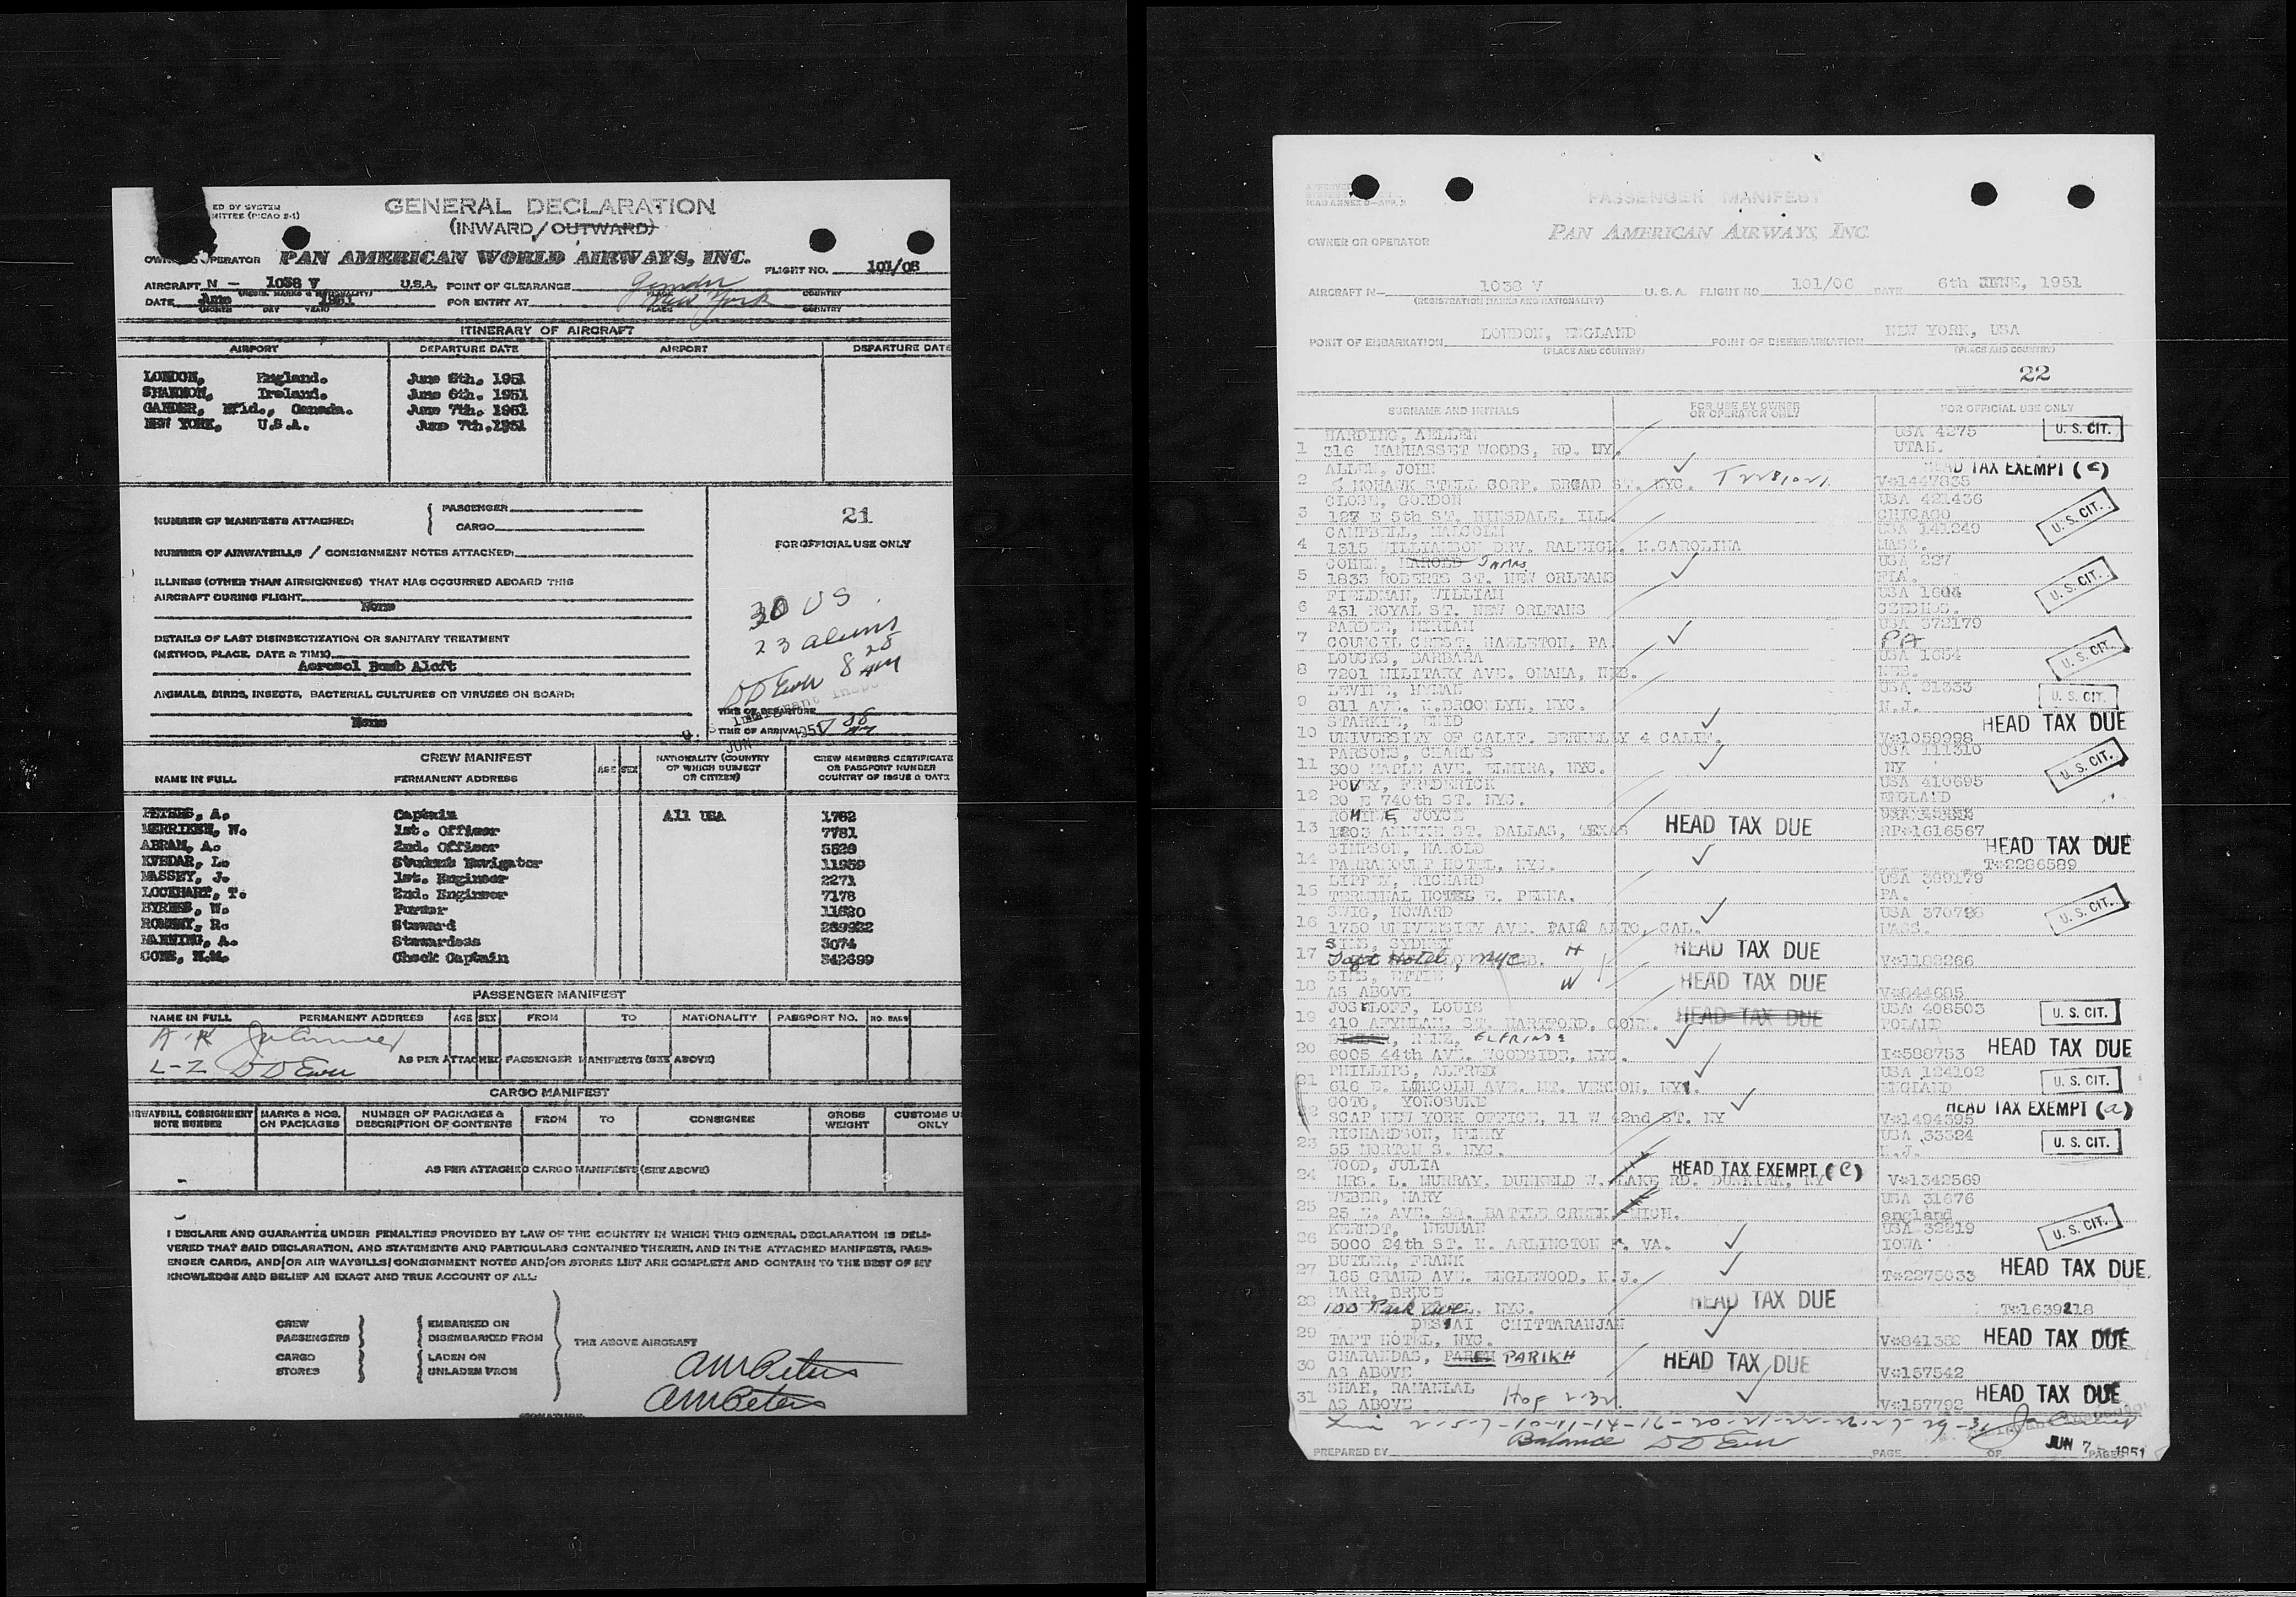 ED BY SYSTEM
MITTEE (PICAO S-1)
GENERAL DECLARATION
(INWARD/OUTWARD)
OPERATOR PAN AMERICAN WORLD AIRWAYS, INC. FLIGHT NO. 101/06
AIRCRAFT N — 1038 V U.S.A. POINT OF CLEARANCE Gander
DATE June 1951 FOR ENTRY AT New York
(MONTH DAY YEAR) PLACE COUNTRY
ITINERARY OF AIRCRAFT
AIRPORT DEPARTURE DATE AIRPORT DEPARTURE DATE
LONDON, England. June 6th. 1951
SHANNON, Ireland. June 6th. 1951
GANDER, Nfld., Canada. June 7th. 1951
NEW YORK, U.S.A. June 7th.1951
NUMBER OF MANIFESTS ATTACHED: { PASSENGER
CARGO
21
FOR OFFICIAL USE ONLY
NUMBER OF AIRWAYBILLS / CONSIGNMENT NOTES ATTACHED:
ILLNESS (OTHER THAN AIRSICKNESS) THAT HAS OCCURRED ABOARD THIS
AIRCRAFT DURING FLIGHT
None
30 US
23 aliens
DETAILS OF LAST DISINSECTIZATION OR SANITARY TREATMENT
(METHOD, PLACE, DATE & TIME)
Aerosol Bomb Aloft
DD Ewer 8 25 AM
ANIMALS, BIRDS, INSECTS, BACTERIAL CULTURES OR VIRUSES ON BOARD:
None
TIME OF DEPARTURE
TIME OF ARRIVAL
CREW MANIFEST
NAME IN FULL PERMANENT ADDRESS AGE SEX NATIONALITY (COUNTRY OF WHICH SUBJECT OR CITIZEN) CREW MEMBERS CERTIFICATE OR PASSPORT NUMBER COUNTRY OF ISSUE & DATE
PETERS, A. Captain All USA 1762
MERRIKEN, W. 1st. Officer 7781
ABRAM, A. 2nd. Officer 5520
KVEDAR, L. Student Navigator 11959
MASSEY, J. 1st. Engineer 2271
LOCKHART, T. 2nd. Engineer 7178
BYRNES, W. Purser 11520
ROMNEY, R. Steward 269922
MANNING, A. Stewardess 3074
CONE, H.M. Check Captain 342699
PASSENGER MANIFEST
NAME IN FULL PERMANENT ADDRESS AGE SEX FROM TO NATIONALITY PASSPORT NO. NO. BAGS
A-K
L-Z DD Ewer
AS PER ATTACHED PASSENGER MANIFESTS (SEE ABOVE)
CARGO MANIFEST
AIRWAYBILL CONSIGNMENT NOTE NUMBER MARKS & NOS. ON PACKAGES NUMBER OF PACKAGES & DESCRIPTION OF CONTENTS FROM TO CONSIGNEE GROSS WEIGHT CUSTOMS US ONLY
AS PER ATTACHED CARGO MANIFESTS (SEE ABOVE)
I DECLARE AND GUARANTEE UNDER PENALTIES PROVIDED BY LAW OF THE COUNTRY IN WHICH THIS GENERAL DECLARATION IS DELI-
VERED THAT SAID DECLARATION, AND STATEMENTS AND PARTICULARS CONTAINED THEREIN, AND IN THE ATTACHED MANIFESTS, PASS-
ENGER CARDS, AND/OR AIR WAYBILLS/CONSIGNMENT NOTES AND/OR STORES LIST ARE COMPLETE AND CONTAIN TO THE BEST OF MY
KNOWLEDGE AND BELIEF AN EXACT AND TRUE ACCOUNT OF ALL:
CREW EMBARKED ON
PASSENGERS DISEMBARKED FROM
CARGO LADEN ON
STORES UNLADEN FROM
THE ABOVE AIRCRAFT
AM Peters
AM Peters
SIGNATURE
PASSENGER MANIFEST
PAN AMERICAN AIRWAYS, INC.
OWNER OR OPERATOR
AIRCRAFT N— 1038 V U.S.A. FLIGHT NO 101/06 DATE 6th JUNE, 1951
(REGISTRATION MARKS AND NATIONALITY)
POINT OF EMBARKATION LONDON, ENGLAND POINT OF DISEMBARKATION NEW YORK, USA
(PLACE AND COUNTRY) (PLACE AND COUNTRY)
22
SURNAME AND INITIALS FOR USE BY OWNER OR OPERATOR ONLY FOR OFFICIAL USE ONLY
HARDING, AELLEN USA 4275 U. S. CIT.
1 316 MANHASSET WOODS, RD. NY. UTAH.
ALLEN, JOHN HEAD TAX EXEMPT (c)
2 % MOHAWK STELL CORP. BROAD ST. NYC. V#1447835
CLOSE, GORDON USA 421436
3 127 E 5th ST. HINSDALE, ILL. CHICAGO U. S. CIT.
CAMPBELL, MALCOLM USA 141249
4 1315 WILLIAMSON DRV. RALEIGH, N.CAROLINA MASS.
COHEN, HAROLD USA 227
5 1833 ROBERTS ST. NEW ORLEANS U. S. CIT.
FIELDMAN, WILLIAM USA 1604
6 431 ROYAL ST. NEW ORLEANS CZECHOS.
PARDEE, MIRIAM USA 372179
7 COUNCIL CREST, HAZLETON, PA. PA
LOUCKS, BARBARA USA 1654 U. S. CIT.
8 7201 MILITARY AVE. OMAHA, NEB. NEB.
LEVINE, HYMAN USA 21333 U. S. CIT.
9 811 AVE. N.BROOKLYN, NYC. N.J.
STARKIE, ENID HEAD TAX DUE
10 UNIVERSITY OF CALIF. BERKELEY 4 CALIF. V#1059998
PARSONS, CHARLES USA 111310
11 300 MAPLE AVE. ELMIRA, NYC. NY U. S. CIT.
POVEY, FREDERICK USA 410695
12 20 E 740th ST. NYC. ENGLAND
ROMINE, JOYCE
13 1203 ANNINE ST. DALLAS, TEXAS HEAD TAX DUE RP#1616567
SIMPSON, HAROLD HEAD TAX DUE
14 PARRAMOUNT HOTEL, NYC. T#2286589
LIPPAY, RICHARD
15 TERMINAL HOTEL E. PENNA. PA.
SWIG, HOWARD USA 370726 U. S. CIT.
16 1750 UNIVERSITY AVE. PALO ALTO, CAL. MASS.
SIMS, SYDNEY HEAD TAX DUE
17 Taft Hotel, NYC H V#1182266
HEAD TAX DUE
18 AS ABOVE W V#844685
JOSELOFF, LOUIS HEAD TAX DUE USA 408503 U. S. CIT.
19 HARTFORD, CONN. POLAND
ELFRIEDE HEAD TAX DUE
20 6005 44th AVE. WOODSIDE, NYC. I#588753
PHILLIPS, ALFRED USA 124102 U. S. CIT.
21 616 E. LINCOLN AVE. MT. VERNON, NY. ENGLAND
GOTO, YONOSUKE HEAD TAX EXEMPT (a)
22 SCAP NEW YORK OFFICE, 11 W 42nd ST. NY V#1494395
RICHARDSON, HENRY USA 33324 U. S. CIT.
23 55 MORTON S. NYC. N.J.
WOOD, JULIA HEAD TAX EXEMPT (c)
24 MRS. L. MURRAY, DUNKELD W. LAKE RD. DUNKIRK, NY V#1342569
WEBER, MARY USA 31676
25 25 E. AVE. SA. BATTLE CREEK, MICH. england
KERNDT, NEUMAN USA 32219 U. S. CIT.
26 5000 24th ST. N. ARLINGTON F. VA. IOWA
BUTLER, FRANK HEAD TAX DUE.
27 165 GRAND AVE. ENGLEWOOD, N.J. T#2275033
MARR, BRUCE HEAD TAX DUE
28 100 Park Ave. NYC. T#1639218
DESAI CHITTARANJAN
29 TAFT HOTEL, NYC. V#841352 HEAD TAX DUE
CHARANDAS, PARIKH HEAD TAX DUE
30 AS ABOVE V#157542
SHAH, RAMANLAL
31 AS ABOVE V#157792 HEAD TAX DUE
Balance DD Ewer
PREPARED BY PAGE OF PAGES
JUN 7 - 1951